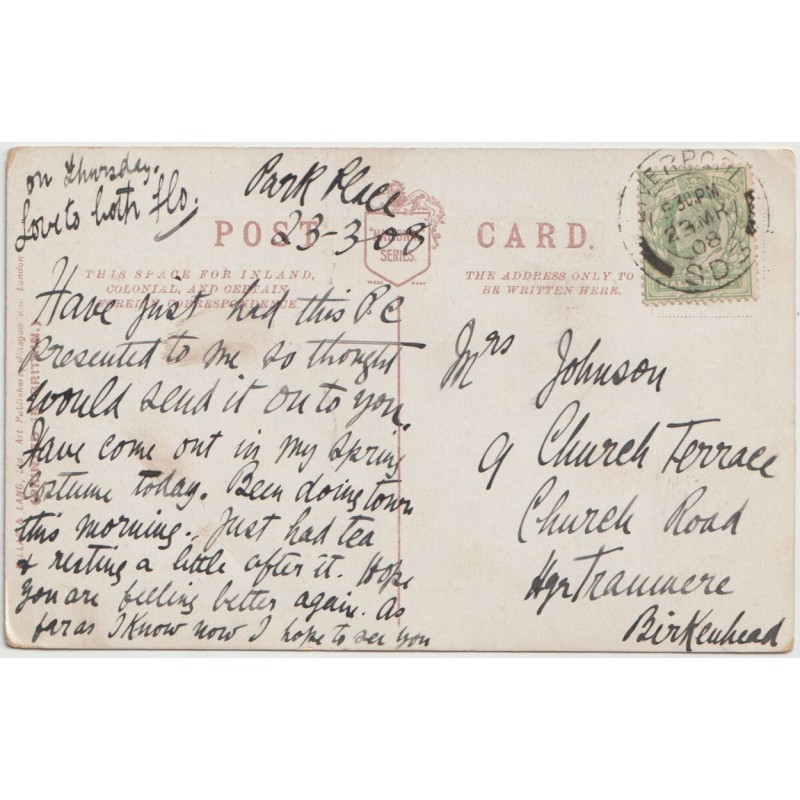 on Thursday.
Love to both Flo.
Park Place
23-3-08
POST CARD.
"NATIONAL"
SERIES.
TRADE MARK
THIS SPACE FOR INLAND,
COLONIAL, AND CERTAIN
FOREIGN CORRESPONDENCE.
THE ADDRESS ONLY TO
BE WRITTEN HERE.
Have just had this P.C
presented to me so thought
would send it on to you.
Have come out in my spring
Costume today. Been doing town
this morning. Just had tea
& resting a little after it. Hope
you are feeling better again. As
far as I know now I hope to see you
Mrs Johnson
9 Church Terrace
Church Road
Hgr Tranmere
Birkenhead
LIVERPOOL
5 30 PM
23 MR
08
S.D
Art Publishers, Glasgow and London
BRITAIN.